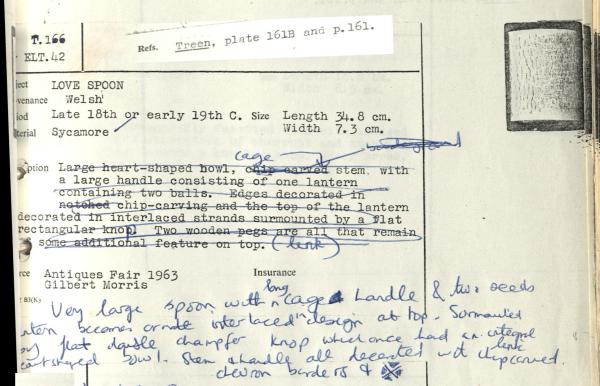 T.166
ELT.42
Refs. Treen, plate 161B and p.161.
ject LOVE SPOON
venance Welsh
iod Late 18th or early 19th C. Size Length 34.8 cm.
terial Sycamore Width 7.3 cm.
cage
ption Large heart-shaped bowl, chip carved stem with
a large handle consisting of one lantern
containing two balls. Edges decorated in
notched chip-carving and the top of the lantern
decorated in interlaced strands surmounted by a flat
rectangular knop. Two wooden pegs are all that remain
some additional feature on top. (link)
ce Antiques Fair 1963 Insurance
Gilbert Morris
long
Very large spoon with cage handle & two seeds
becomes ornate interlaced design at top. Surmounted
by flat double chamfer knop which once had an integral link
heart shaped bowl. Stem & handle all decorated with chip carved
chevron borders &